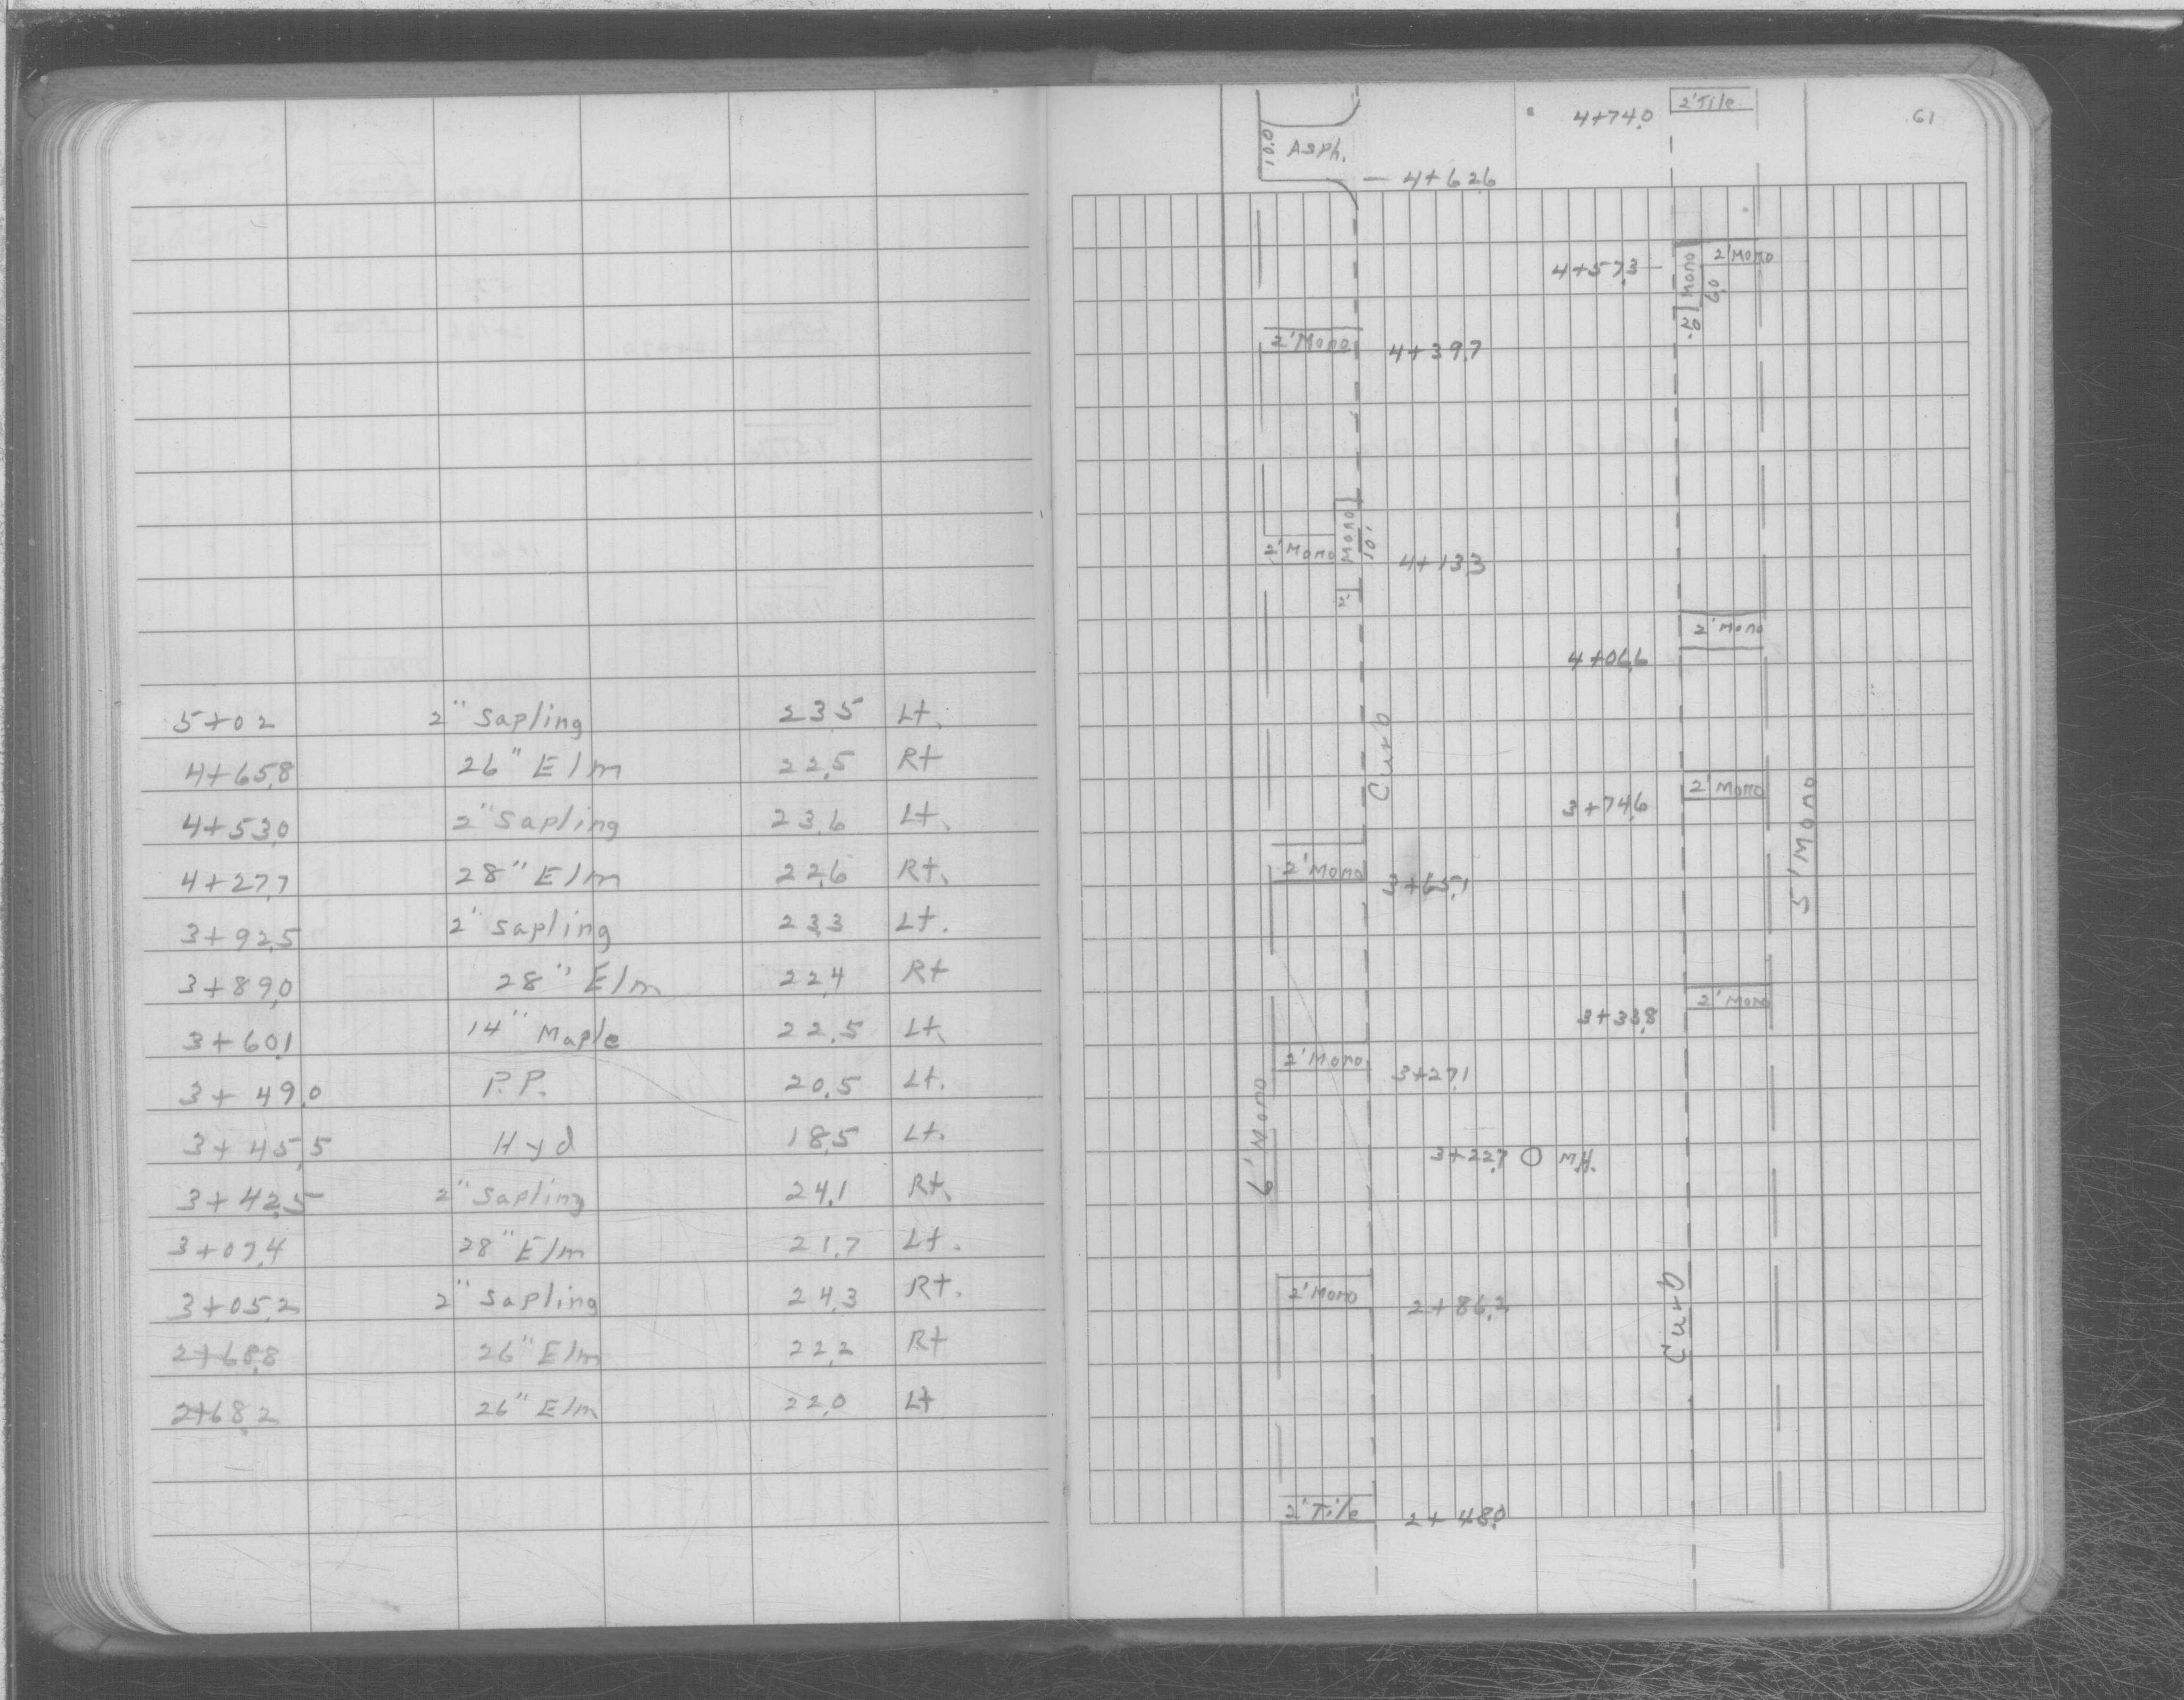 5+02 2" Sapling 23.5 Lt.
4+65.8 26" Elm 22.5 Rt
4+53.0 2" Sapling 23.6 Lt.
4+27.7 28" Elm 22.6 Rt.
3+92.5 2" Sapling 23.3 Lt.
3+89.0 28" Elm 22.4 Rt
3+60.1 14" Maple 22.5 Lt.
3+49.0 P.P. 20.5 Lt.
3+45.5 Hyd 18.5 Lt.
3+42.5 2" Sapling 24.1 Rt.
3+07.4 28" Elm 21.7 Lt.
3+05.2 2" Sapling 24.3 Rt.
2+68.8 26" Elm 22.2 Rt
2+68.2 26" Elm 22.0 Lt
61
4+74.0 2' Tile
10.0 Asph.
4+62.6
4+57.3 Mono 2' Mono
6.0
2.0
2' Mono 4+39.7
2' Mono Mono 10' 4+13.3
2'
2' Mono
4+06.6
Curb
3+74.6 2' Mono
5' Mono
2' Mono 3+65.1
3+33.8 2' Mono
2' Mono 3+27.1
6' Mono
3+22.7 M.H.
2' Mono 2+86.2
Curb
2' Tile 2+48.0